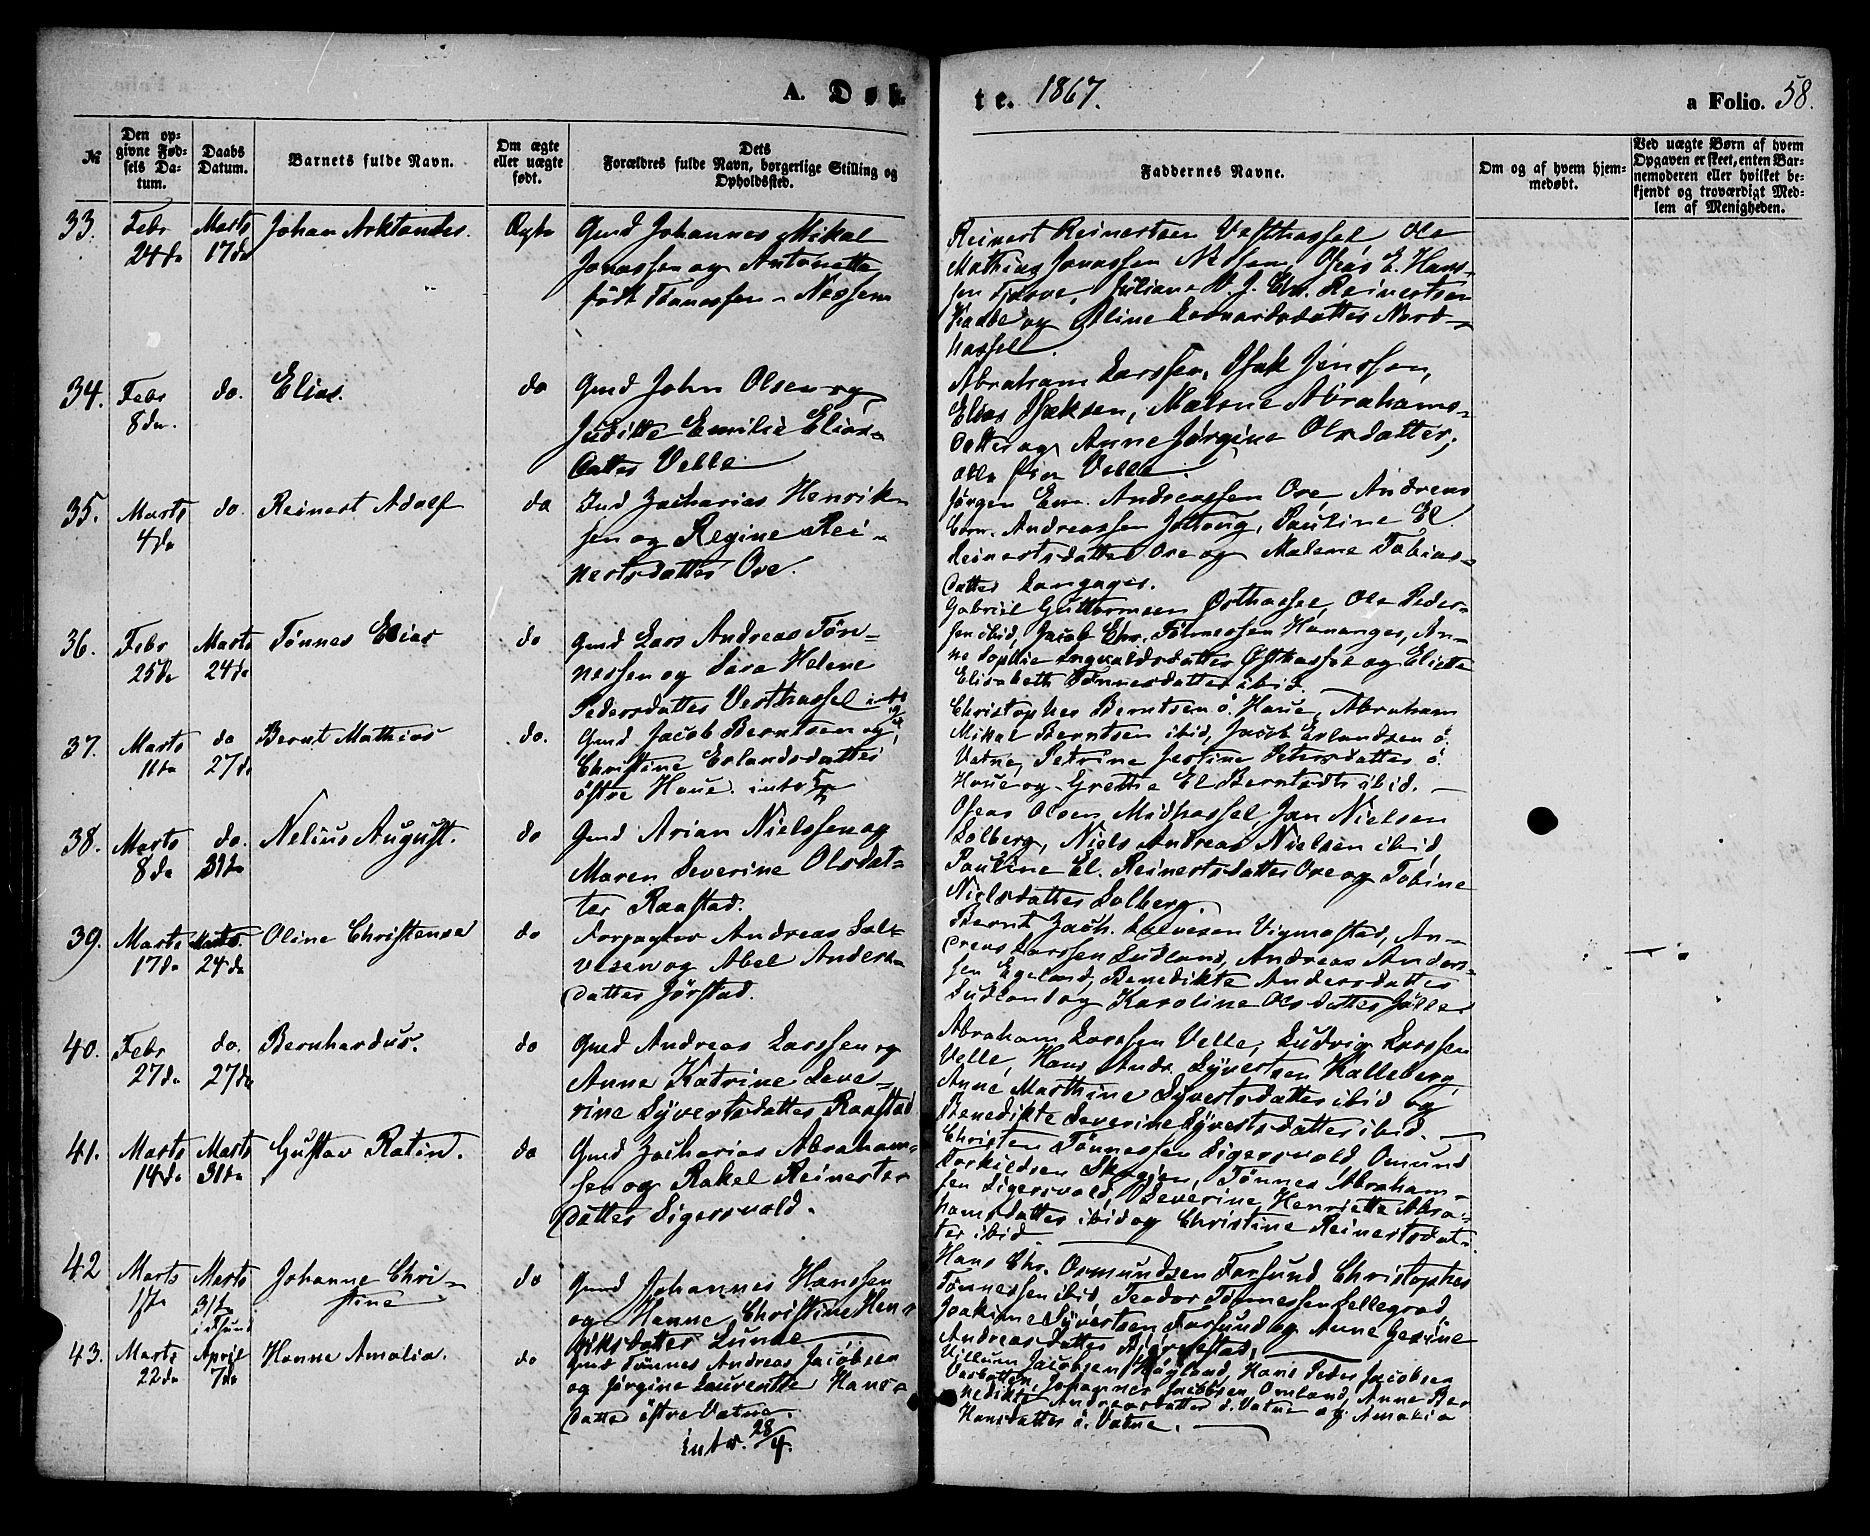 A. Døb-
te. 1867.
a Folio. 58.
№
Den op-
givne Fød-
sels Da-
tum.
Daabs
Datum.
Barnets fulde Navn.
Om ægte
eller uægte
født.
Dets
Forældres fulde Navn, borgerlige Stilling og
Opholdssted.
Faddernes Navne.
Om og af hvem hjem-
medøbt.
Ved uægte Børn af hvem
Opgaven er skeet, enten Bar-
nemoderen eller hvilket be-
kjendt og troværdigt Med-
lem af Menigheden.
33. Febr Marts Johan Ægte Gmd Johannes Mikal
24de 17de Jonassen og Antonette
født Tønnessen Nessem
Reinert Reinertsen Vesthassel, Ole
Mathias Jonassen Nessem, Oseas E. Hans-
sen Tjørve, Juliane Reinertsen
Kaabe og Oline Nord-
hassel.
34. Febr do. Elias. do Gmd John Olsen og
8de. Juditte Emilie Elias-
datter Velle
Abraham Larssen, Isak Jenssen,
Elias Isaksen, Malene Abrahams-
datter og Anne Jørgine Olsdatter,
alle fra Velle.
35. Marts do. Reinert Adolf do Ind Zacharias Henrik-
4de sen og Regine Rei-
nertsdatter Ore.
Jørgen Em. Andreassen Ore, Andreas
Corn. Andreassen Jolleug, Pauline El
Reinertsdatter Ore og Malene Tobias-
datter Langager.
36. Febr Marts Tønnes Elias do Gmd Lars Andreas Tøn-
25de 24de nessen og Sara Helene
Pedersdatter Vesthassel
Gabriel Guttormsen Østhassel, Ole Peder-
sen ibid, Jacob Chr. Tønnessen Hananger, An-
ne Sophie Ingvaldsdatter Østhassel og Eliette
Elisabeth Tønnesdatter ibid.
37. Marts do Bernt Mathias do. Gmd Jacob Berntsen og
11te 27de Christine Erlandsdatter
østre Haue. intr
Christopher Berntsen ø. Haue, Abraham
Mikal Berntsen ibid, Jacob Erlandsen ø.
Vatne, Petrine Jestine Petersdatter ø.
Haue og Grethe El Berntsdtr ibid.
38. Marts do. Nelius August. do Gmd Arian Nielssen og
8de 31te Maren Severine Olsdat-
ter Raastad.
Oseas Olsen Midhassel, Jan Nielsen
Solberg, Niels Andreas Nielsen ibid
Pauline El. Reinertsdatter Ore og Tobine
Nielsdatter Solberg.
39. Marts Marts. Oline Christense do Forpagter Andreas Sal-
17de 24de vesen og Abel Anders-
datter Jørstad.
Bernt Zach. Salvesen Vigmostad, An-
dreas Larssen Sudland, Andreas Anders-
sen Egeland, Benedikte Andersdatter
Sudland og Karoline Olsdatter Jølle
40. Febr do. Bernhardus. do Gmd Andreas Larssen og
27de 27de Anne Katrine Seve-
rine Syvertsdatter Raastad
Abraham Larssen Velle, Ludvig Larssen
Velle, Hans Andr. Syvertsen Kalleberg,
Anne Marthine Syvertsdatter ibid og
Benedikte Severine Syvertsdatter ibid.
41. Marts Marts Gustav Ratin. do Gmd Zacharias Abraham-
14de 31te sen og Rakel Reinerts-
datter Sigersvold.
Christen Tønnessen Sigersvold, Omund
Torkildsen Skegien, Tønnes Abraham-
sen Sigersvold, Severine Henriette Abra-
hamsdatter ibid og Christine Reinertsdat-
ter ibid
42 Marts Marts Johanne Chri- do Gmd Johannes Hanssen
1ste 31te stine og Hanne Christine Hen-
riksdatter Lunde
Hans Chr. Osmundsen Farsund, Christopher
Tønnessen ibid, Teodor Tønnessen Sellegrod,
Joakime Syvertsen Farsund og Anne Gesine
Andreasdatter Bjørnestad.
43. Marts April Hanne Amalia. do Gmd Tønnes Andreas Jacobsen
22de 7de og Jørgine Laurentse Hans-
datter østre Vatne.
intr. 28/4.
Villum Jacobsen Høyland, Hans Peder Jacobsen
Johannes Jacobsen Omland, Anne Be-
nedikte Andreasdatter ø. Vatne og Amalia
Hansdatter ø. Vatne.